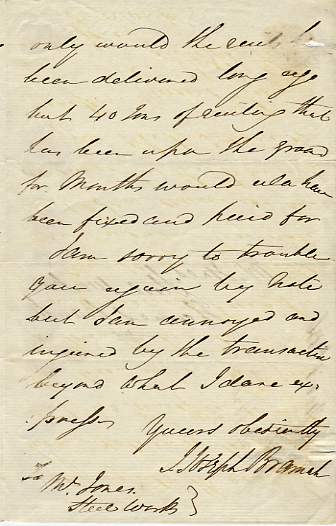 only would the rails have
been delivered long ago
but 40 Tons of casting that
has been upon the ground
for Months would also have
been fixed and paid for
I am sorry to trouble
you again by Note
but I am annoyed and
injured by the transaction
beyond what I dare ex-
press
Yours obediently
J Joseph Bramah
To
Mr. Jones.
Steel Works